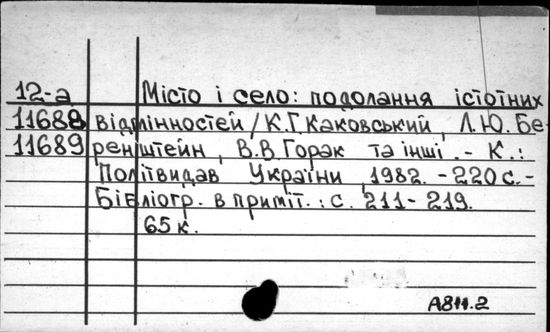 12-а Місто і село: подолання істотних
11688 відмінностей / К.Г. Каковський, Л.Ю. Бе-
11689 ренштейн, В.В. Горак та інші. - К.:
Політвидав України, 1982. - 220 с. -
Бібліогр. в приміт.: с. 211- 219.
65 к.
А811.2